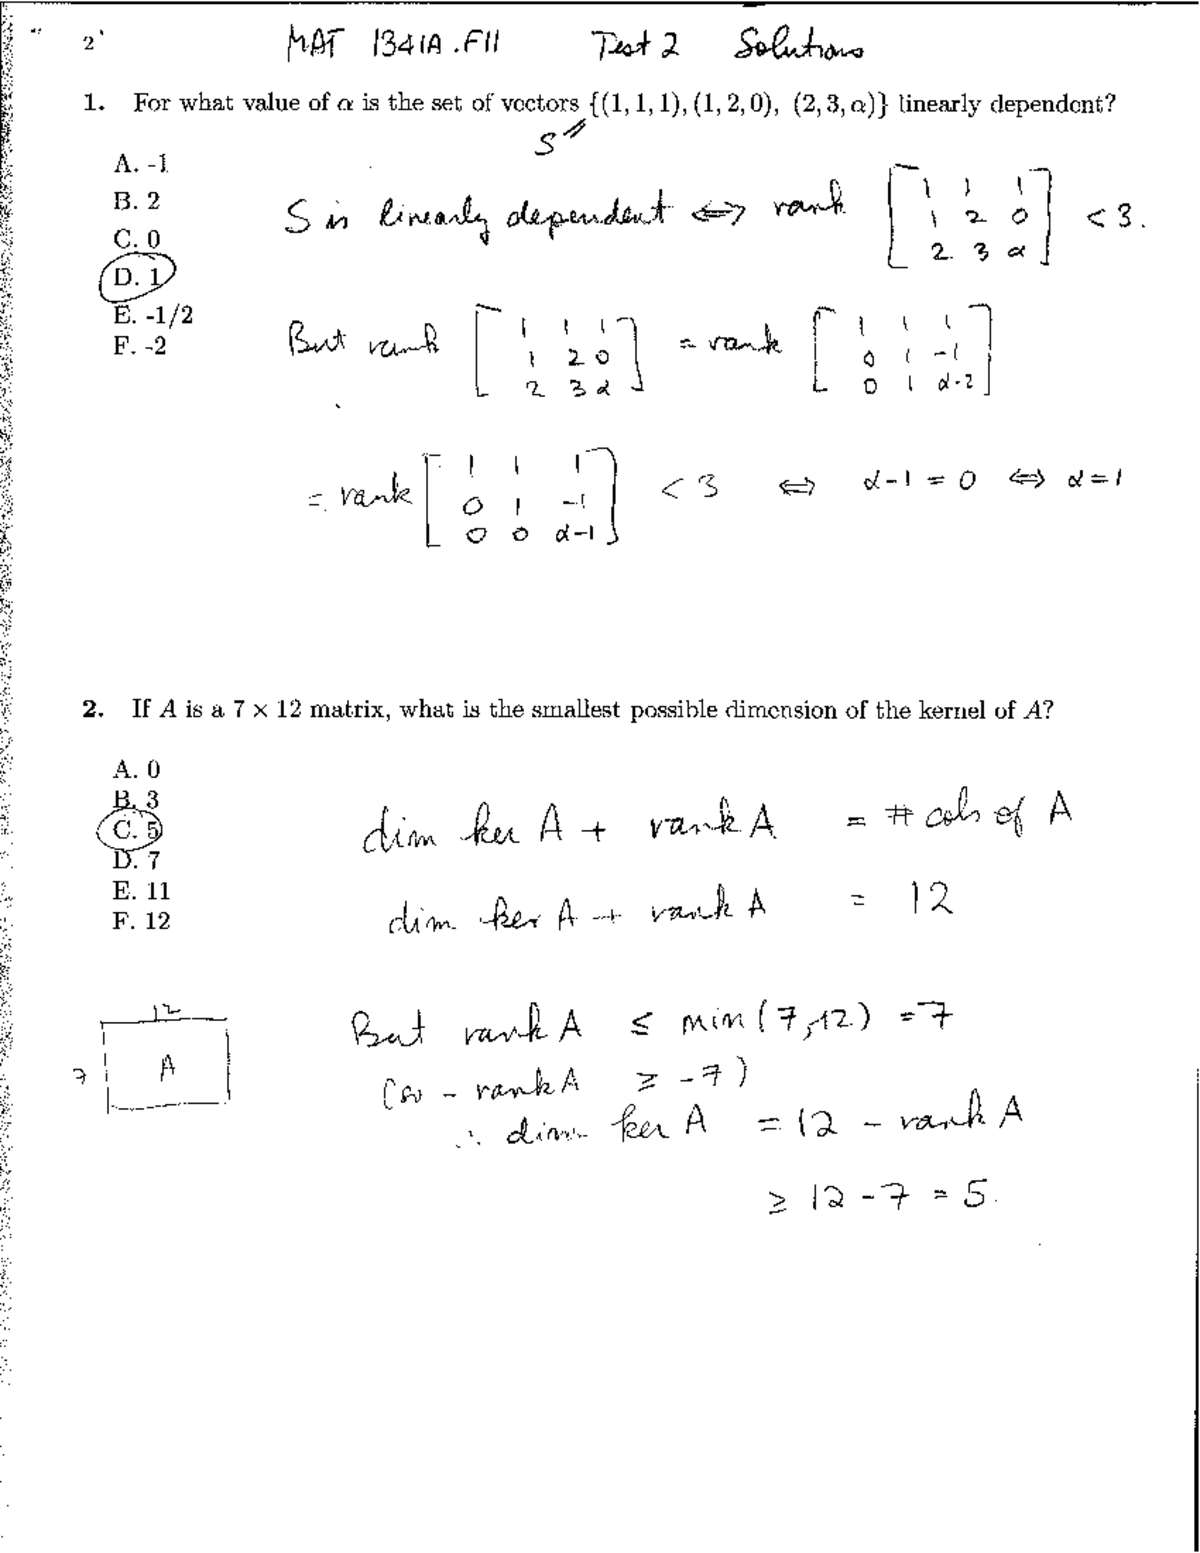 2
MAT 1341A.F11 Test 2 Solutions
1. For what value of α is the set of vectors {(1, 1, 1), (1, 2, 0), (2, 3, α)} linearly dependent?
S
A. -1
B. 2
C. 0
D. 1
E. -1/2
F. -2
S is linearly dependent ⟺ rank [1 1 1
1 2 0
2 3 α] < 3.
But rank [1 1 1
1 2 0
2 3 α] = rank [1 1 1
0 1 -1
0 1 α-2]
= rank [1 1 1
0 1 -1
0 0 α-1] < 3 ⟺ α-1 = 0 ⟺ α=1
2. If A is a 7 × 12 matrix, what is the smallest possible dimension of the kernel of A?
A. 0
B. 3
C. 5
D. 7
E. 11
F. 12
dim ker A + rank A = # cols of A
dim ker A + rank A = 12
12
7 A
But rank A ≤ min(7,12) = 7
(so - rank A ≥ -7)
∴ dim ker A = 12 - rank A
≥ 12 - 7 = 5.